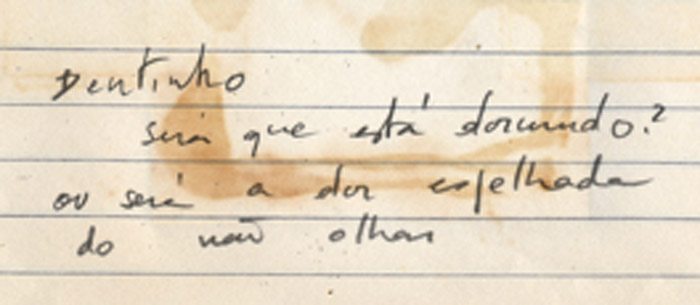 Dentinho
será que está dormindo?
ou será a dor espelhada
do não olhar